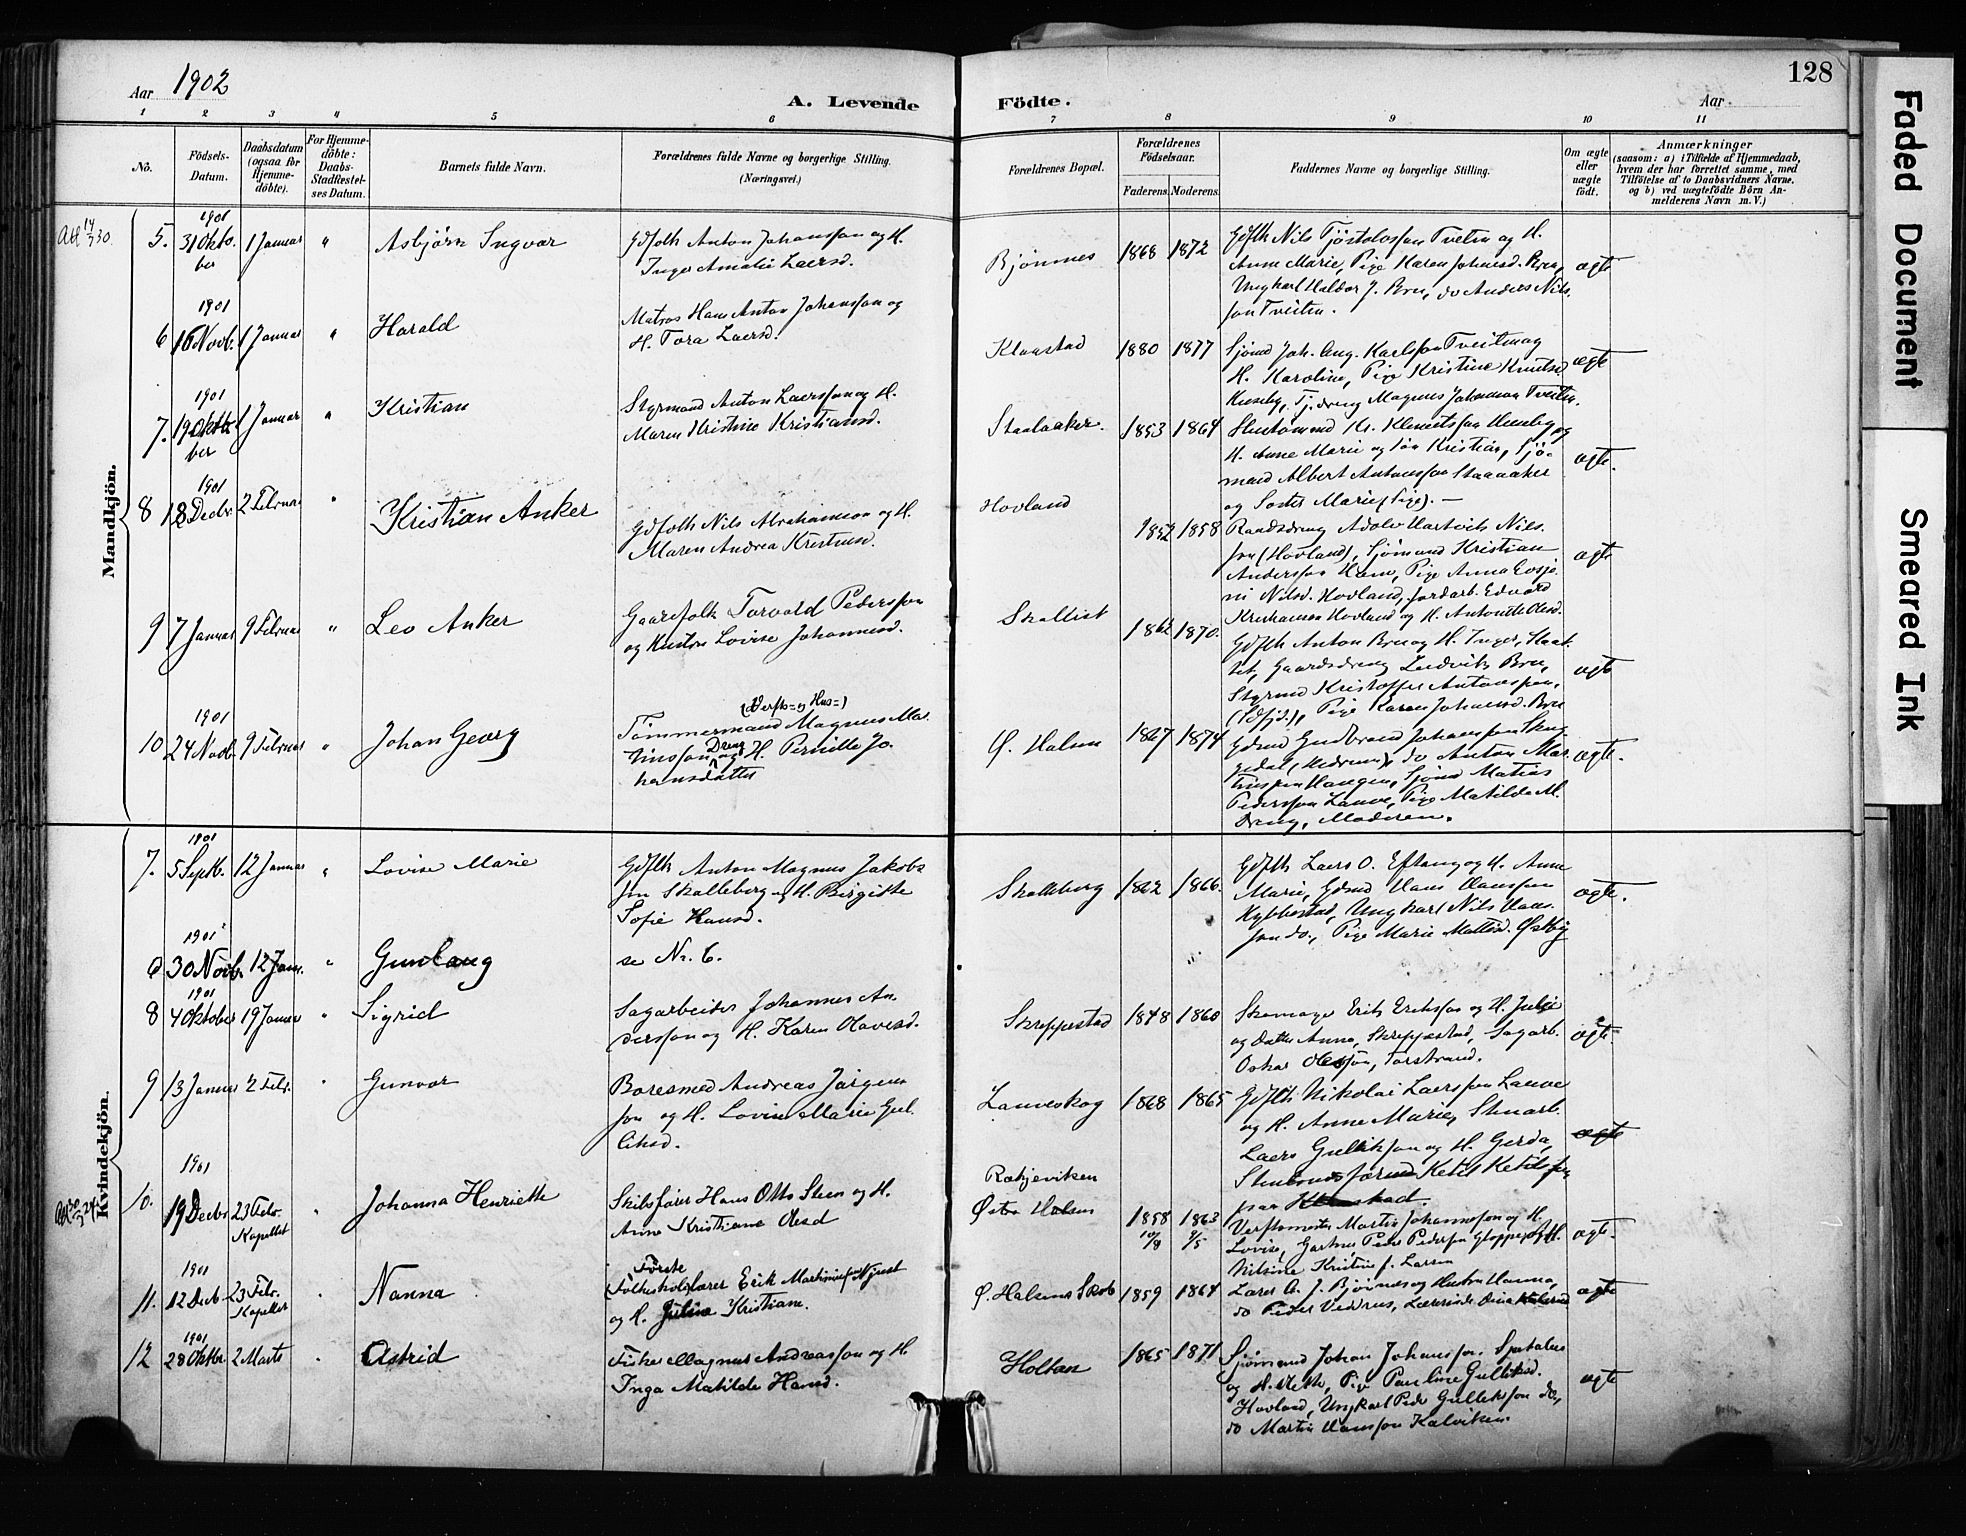 Aar 1902
A. Levende Födte.
Aar
128
1 2 3 4 5 6 7 8 9 10 11
No.
Födsels-Datum.
Daabsdatum (ogsaa for Hjemmedöbte).
For Hjemmedöbte: Daabs-Stadfæstelses Datum.
Barnets fulde Navn.
Forældrenes fulde Navne og borgerlige Stilling. (Næringsvei.)
Forældrenes Bopæl.
Forældrenes Födselsaar.
Faderens. Moderens.
Faddernes Navne og borgerlige Stilling.
Om ægte eller uægte født.
Anmærkninger
(saasom: a) i Tilfælde af Hjemmedaab, hvem der har forrettet samme, med Tilföielse af to Daabsvidners Navne, og b) ved uægtefödte Börn Anmelderens Navn m. V.)
Mandkjön.
Att 14/7 30. 5. 1901 31 Oktober 1 Januar " Asbjørn Ingvar
Gdfolk Anton Johansson og H.
Inger Amalie Laersd.
Bjønnes 1868 1872
Gdflk Nils Tjøstolvsson Tveten og H.
Anne Marie, Pige Karen Johansd. Bru,
Ungkarl Haldor J. Bru, do Anders Nils.
son Tveiten.
ægte
6 1901 16 Novb. 1 Januar " Harald
Matros Hans Anton Johansson og
H. Tora Laersd.
Klaastad 1880 1877
Sjømd Joh. Aug. Karlsson Tveiten og
H. Karoline, Pige Kristine Knutsd
Huseby, Tj.dreng Magnus Johansson Tveiten.
ægte
7. 1901 19 Oktober 1 Januar " Kristian
Styrmand Anton Laersson og H.
Maren Kristine Kristiansd.
Staalaaker. 1853 1864
H. Anne Marie og søn Kristian, Sjø-
mand Albert Antonsson Staalaaker
og Søster Marie (Pige). —
ægte.
8 1901 18 Decbr. 2 Februar " Kristian Anker
Gdfolk Nils Abrahamson og H.
Maren Andrea Kristensd.
Hovland 1852 1858
Gaardsdreng Adolv Hartvik Nils.
son (Hovland), Sjømand Kristian
Andersson Ham, Pige Anna Eosje
ni Nilsd. Hovland, Jordarb. Edvard
Kristiansen Hovland og H. Antonette Olsd.
ægte
9 7 Januar 9 Februar " Leo Anker
Gaardfolk Torvald Pedersson
og Hustru Lovise Johannesd.
Skallist 1862 1870.
Gdflk Anton Bru og H. Inger, Skal-
list, Gaardsdreng Ludvik Bru,
Styrmd Kristoffer Antonsson,
Pige Karen Johansd. Bru
ægte
10 1901 24 Novb. 9 Februar " Johan Georg
(Verfts- og Hus-)
Tømmermand Magnus Ma.
tinsson Dreng og H. Pernille Jo.
hansdatter
Ø. Halsen 1867 1874
Gdmd Gudbrand Johansson Skou
gedal (Hedrum), do Anton Mar.
tinssen Haugen, Sjømd Matias
Pedersson Lauve, Pige Matilde M.
Dreng, Moderen.
ægte.
Kvindekjön.
7. 1901 5 Septb. 12 Januar " Lovise Marie
Gdflk Anton Magnus Jakobs
son Skalleberg og H. Birgitte
Sofie Hansd.
Skalleberg 1862 1866.
Gdflk Laers O. Eftang og H. Anne
Marie, Gdmd Hans Hansson
Kybbestad, Ungkarl Nils Hans.
son do., Pige Marie Mattisd. Østby
ægte.
6 1901 30 Novb. 12 Jan. " Gunlaug
se Nr. 6.
8 1901 4 Oktober 19 Januar " Sigrid
Sagarbeider Johannes An.
dersson og H. Karen Olavesd.
Skreppestad 1848 1860
Skomager Erik Eriksson og H. Julie
og datter Anna, Skreppestad, Sagarb.
Oskar Olesson, Torstrand.
ægte
9 13 Januar 2 Febr. " Gunvor
Boresmed Andreas Jørgens
son og H. Lovise Marie Gul.
liksd.
Lauveskog 1868 1865
Gdflk Nikolai Laersson Lauve
og H. Anne Marie, Stenarb.
Laers Gulliksson og H. Gerda,
Ketil Ketilsson
fraa
ægte
Att 30/3 24 10. 1901 19 Decbr. 23 Febr. Kapellet " Johanna Henriette
Skibsfører Hans Otto Steen og H.
Anne Kristiane Olesd
Rakjeviken
Østre Halsen 1858 10/8 1863 9/5
Verftsmester Martin Johannesson og H.
Lovise, Gartner Peder Pedersen Gloppe og H.
Nilsine Kristine f. Larsen
ægte.
11. 1901 12 Decb. 23 Febr. Kapellet " Nanna
Første
Folkeskolelærer Erik Martinius Njust
og H. Julina Kristiane.
Ø. Halsens Skole 1859 1864
Lærer A. J. Bjønnes og Hustru Hanna,
do Peder Vedrus, Lærerinde Dina
ægte
12 1901 28 Oktbr. 2 Marts " Astrid
Fisker Magnus Andreasson og H.
Inga Matilde Hansd.
Holtan 1865 1871
Sjømand Johan Johansson,
og H. Mette, Pige Pauline Gulliksd.
Hovland, Ungkarl Peder Gulliksson do,
do Martin Hansson Kalviken.
ægte
Faded Document
Smeared Ink